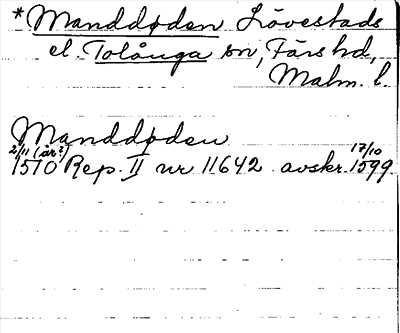 *Manddøden Lövestads
el. Tolånga sn, Färs hd,
Malm. l.
Manddøden
2/11 (år?) 17/10
1510 Rep. II nr 11642 avskr. 1599